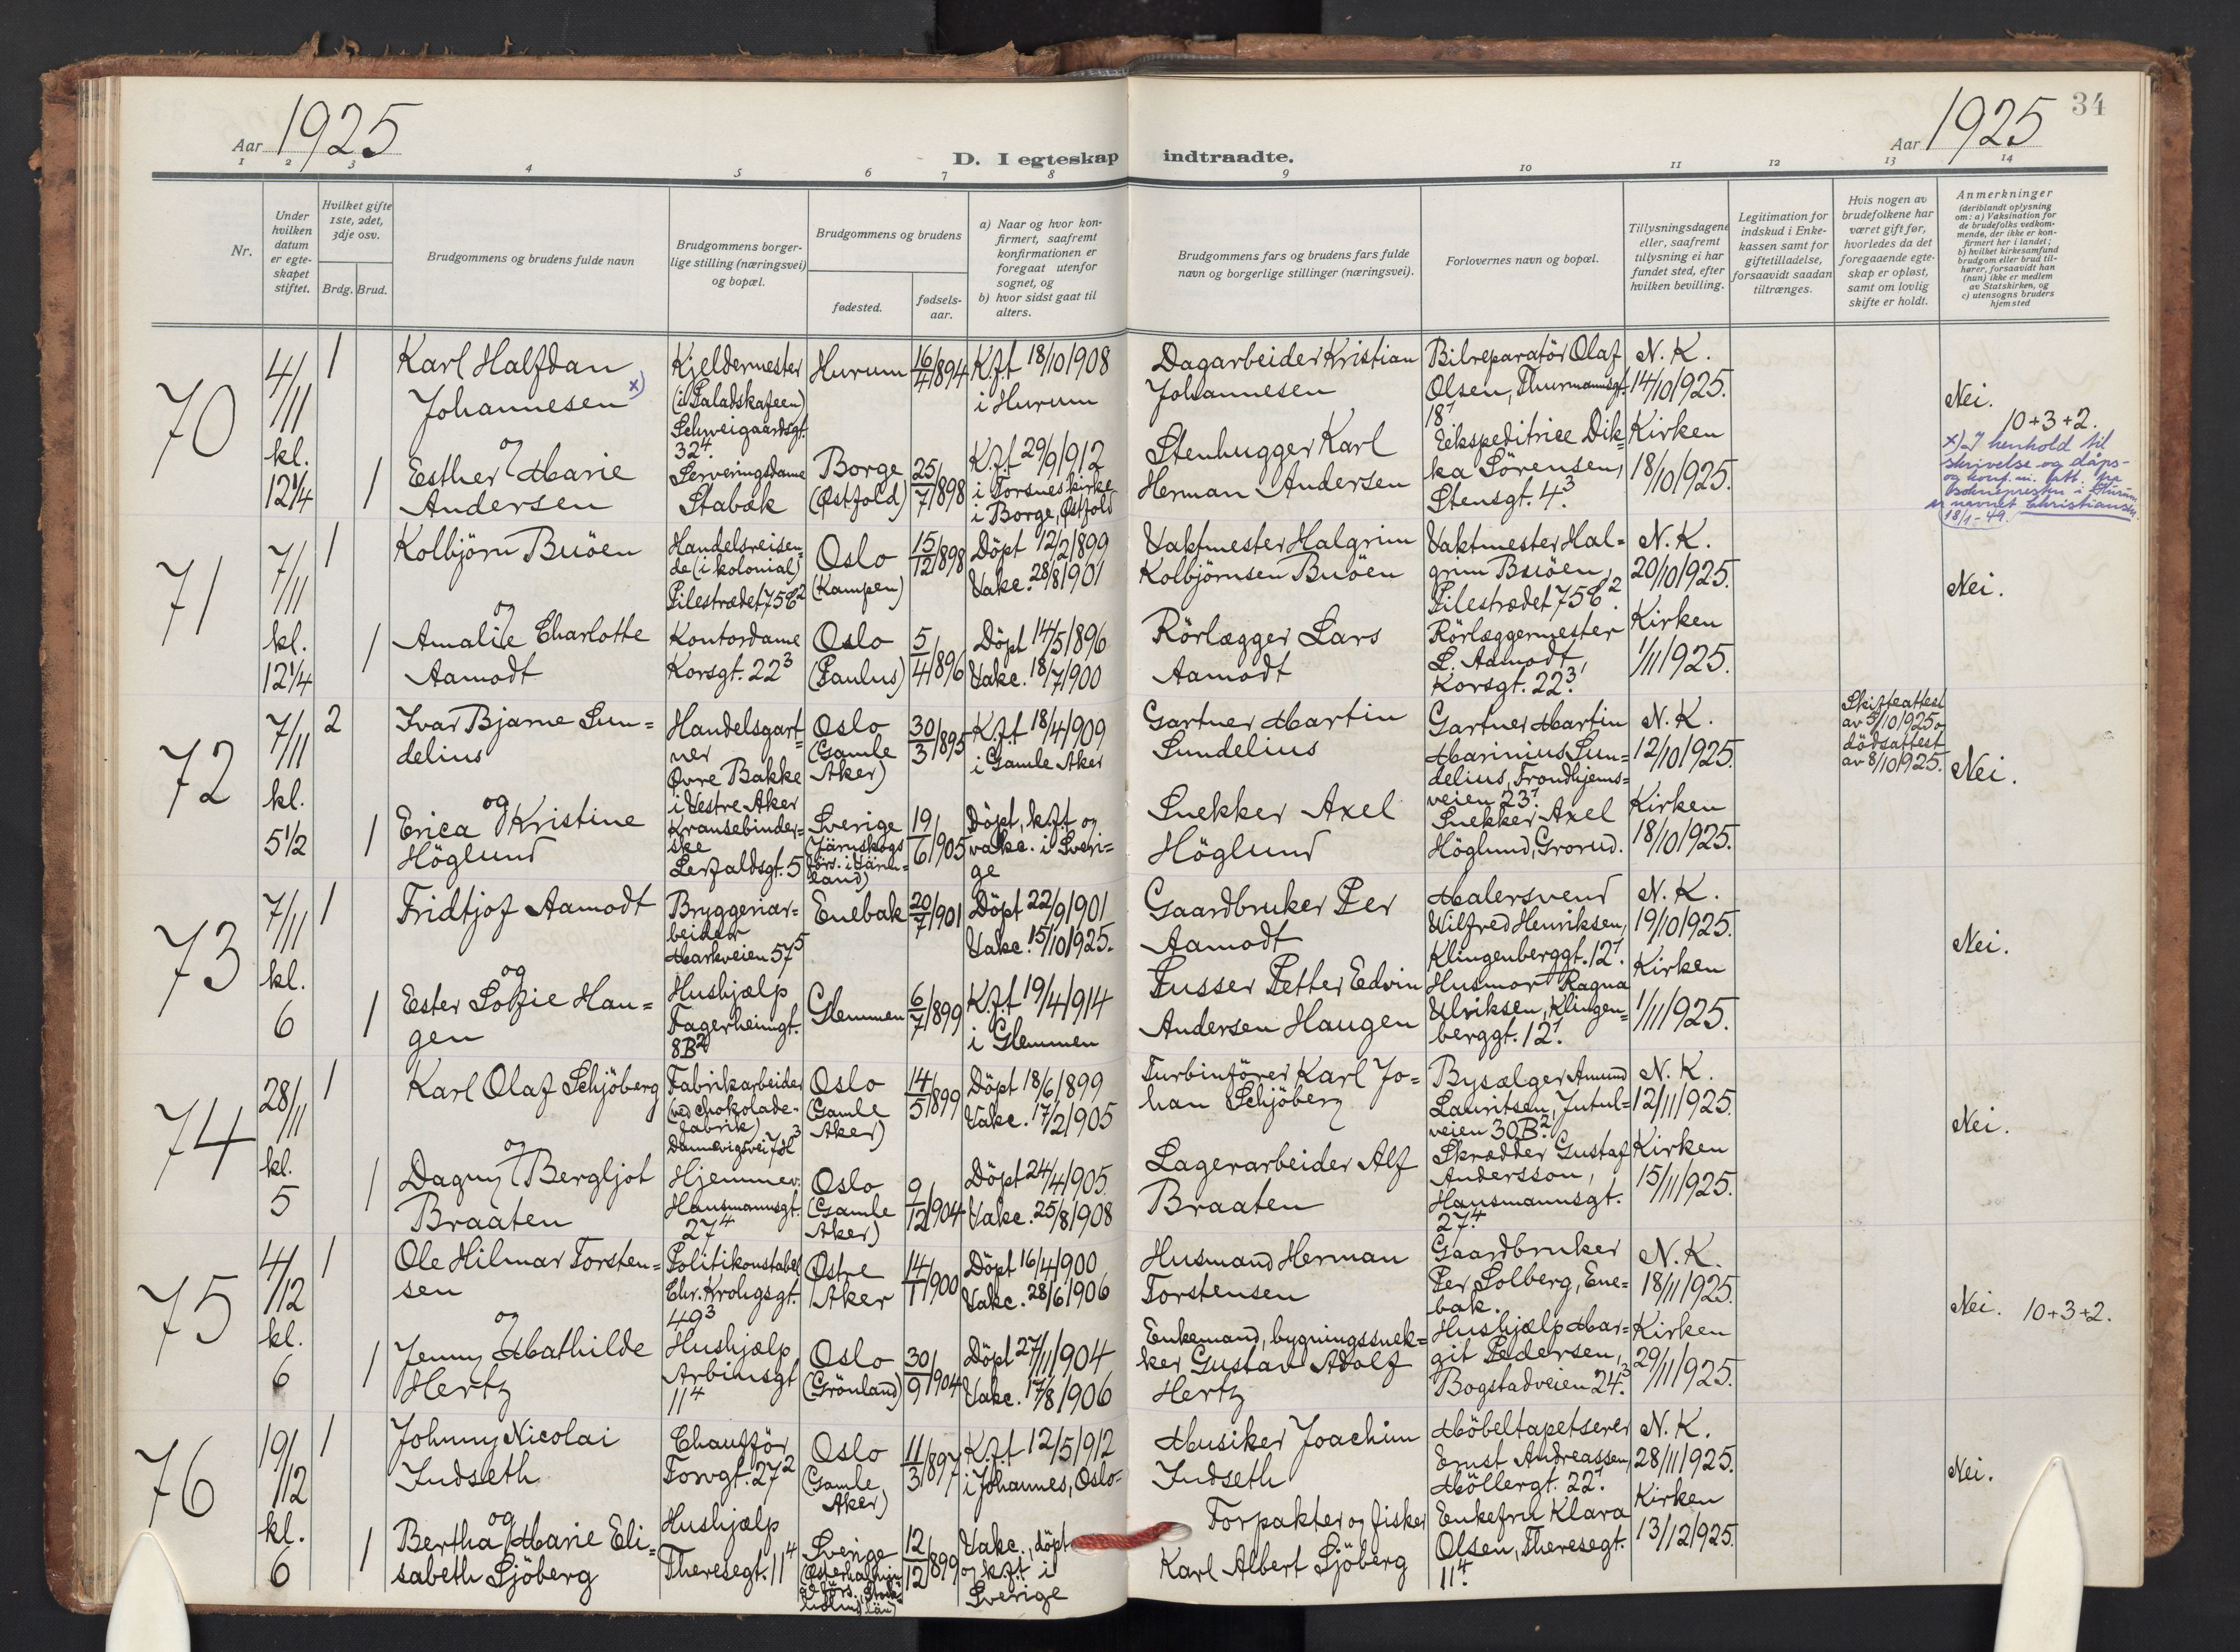 34
Aar 1925
Aar 1925
D. I egteskap indtraadte.
1 2 3 4 5 6 7 8 9 10 11 12 13 14
Nr.
Under
hvilken
datum
er egte-
skapet
stiftet.
Hvilket gifte
1ste, 2det,
3dje osv.
Brdg. Brud.
Brudgommens og brudens fulde navn
Brudgommens borger-
lige stilling (næringsvei)
og bopæl.
Brudgommens og brudens
fødested.
fødsels-
aar.
a) Naar og hvor kon-
firmert, saafremt
konfirmationen er
foregaat utenfor
sognet, og
b) hvor sidst gaat til
alters.
Brudgommens fars og brudens fars fulde
navn og borgerlige stillinger (næringsvei).
Forlovernes navn og bopæl.
Tillysningsdagene
eller, saafremt
tillysning ei har
fundet sted, efter
hvilken bevilling.
Legitimation for
indskud i Enke-
kassen samt for
giftetilladelse,
forsaavidt saadan
tiltrænges.
Hvis nogen av
brudefolkene har
været gift før,
hvorledes da det
foregaaende egte-
skap er opløst,
samt om lovlig
skifte er holdt.
Anmerkninger
(deriblandt oplysning
om: a) Vaksination for
de brudefolks vedkom-
mende, der ikke er kon-
firmert her i landet;
b) hvilket kirkesamfund
brudgom eller brud til-
hører, forsaavidt han
(hun) ikke er medlem
av Statskirken, og
c) utensogns bruders
hjemsted
70
4/11
kl.
12 1/4
1
Karl Halfdan
Johannesen x)
Kjeldermester
(i Paladskafeen)
Schweigaardsgt.
32⁴.
Hurum
16/4 1894
K.f.t 18/10 1908
i Hurum
Dagarbeider Kristian
Johannesen
Bilreparatör Olaf
Olsen, Thurmannsgt.
18¹
N. K.
14/10 1925.
Nei.
10+3+2.
x) I henhold til
skrivelse og dåps-
og konf. att. fra
Soknepresten i Hurum
er navnet Christiansen
18/1 - 49.
og
1
Esther Marie
Andersen
Serveringsdame
Stabæk
Borge
(Østfold)
25/7 1898
K.f.t 29/9 1912
i Torsnes kirke
i Borge, Østfold
Stenhugger Karl
Herman Andersen
Ekspeditrice Dik-
ka Sörensen,
Stensgt. 4³.
Kirken
18/10 1925.
71
7/11
kl.
12 1/4
1
Kolbjörn Buöen
Handelsreisen-
de (i kolonial)
Pilestrædet 75 C²
Oslo
(Kampen)
15/12 1898
Döpt 12/2 1899
Vakc. 28/8 1901
Vaktmester Halgrim
Kolbjörnsen Buöen
Vaktmester Hal-
grim Buöen,
Pilestrædet 75 C².
N. K.
20/10 1925.
Nei.
og
1
Amalie Charlotte
Aamodt
Kontordame
Korsgt. 22³
Oslo
(Paulus)
5/4 1896
Döpt 14/5 1896
Vakc. 18/7 1900
Rörlægger Lars
Aamodt
Rörlæggermester
L. Aamodt,
Korsgt. 22³.
Kirken
1/11 1925.
72
7/11
kl.
5 1/2
2
Ivar Bjarne Lun-
delius
Handelsgart-
ner
Øvre Bakke
i Vestre Aker
Oslo
(Gamle
Aker)
30/3 1895
K.f.t 18/4 1909
i Gamle Aker
Gartner Martin
Lundelius
Gartner Martin
Marinius Lun-
delius, Trondhjems-
veien 23¹.
N. K.
12/10 1925.
Skifteattest
av 5/10 1925 og
dödsattest
av 8/10 1925.
Nei.
og
1
Erica Kristine
Höglund
Kransebinder-
ske
Lerfaldsgt. 5
Sverige
(Järnskogs
förs. i Värm-
land)
19/6 1905
Döpt, k.f.t og
vakc. i Sveri-
ge
Snekker Axel
Höglund
Snekker Axel
Höglund, Grorud.
Kirken
18/10 1925.
73
7/11
kl.
6
1
Fridtjof Aamodt
Bryggeriar-
beider
Markveien 57⁵
Enebak
20/7 1901
Döpt 22/9 1901
Vakc. 15/10 1925.
Gaardbruker Per
Aamodt
Malersvend
Wilfred Henriksen,
Klingenberggt. 12¹.
N. K.
19/10 1925.
Nei.
og
1
Ester Sofie Hau-
gen
Hushjælp
Fagerheimgt.
8B²
Glemmen
6/7 1899
K.f.t 19/4 1914
i Glemmen
Pusser Petter Edvin
Andersen Haugen
Husmor Ragna
Ulriksen, Klingen-
berggt. 12¹.
Kirken
1/11 1925.
74
28/11
kl.
5
1
Karl Olaf Schjöberg
Fabrikarbeider
(ved chokolade-
fabrik)
Dannevigsvei 7H³
Oslo
(Gamle
Aker)
14/5 1899
Döpt 18/6 1899
Vakc. 17/2 1905
Turbinförer Karl Jo-
han Schjöberg
Bysælger Amund
Lauritsen, Jutul-
veien 30B².
N. K.
12/11 1925.
Nei.
og
1
Dagny Bergljot
Braaten
Hjemmev.
Hausmannsgt.
27⁴
Oslo
(Gamle
Aker)
9/12 1904
Döpt 24/4 1905
Vakc. 25/8 1908
Lagerarbeider Alf
Braaten
Skrædder Gustaf
Andersson,
Hausmannsgt.
27⁴.
Kirken
15/11 1925.
75
4/12
kl.
6
1
Ole Hilmar Torsten-
sen
Politikonstabel
Chr. Krohgsgt.
49³
Østre
Aker
14/1 1900
Döpt 16/4 1900
Vakc. 28/6 1906
Husmand Herman
Torstensen
Gaardbruker
Per Solberg, Ene-
bak.
N. K.
18/11 1925.
Nei. 10+3+2.
og
1
Jenny Mathilde
Hertz
Hushjælp
Arbinsgt
11⁴
Oslo
(Grönland)
30/9 1904
Döpt 27/11 1904
Vakc. 17/8 1906
Enkemand, bygningssnek-
ker Gustav Adolf
Hertz
Hushjælp Mar-
git Pedersen,
Bogstadveien 24³.
Kirken
29/11 1925.
76
19/12
kl.
6
1
Johnny Nicolai
Indseth
Chaufför
Torvgt. 27²
Oslo
(Gamle
Aker)
11/3 1897
K.f.t 12/5 1912
i Johannes, Oslo
Musiker Joachim
Indseth
Möbeltapetserer
Ernst Andreassen,
Möllergt. 22¹.
N. K.
28/11 1925.
Nei.
og
1
Bertha Marie Eli-
sabeth Sjöberg
Hushjælp
Theresegt. 11⁴
Sverige
12/12 1899
Vakc., döpt
og k.f.t i
Sverige
Forpakter og fisker
Karl Albert Sjöberg
Enkefru Klara
Olsen, Theresegt.
11⁴.
Kirken
13/12 1925.